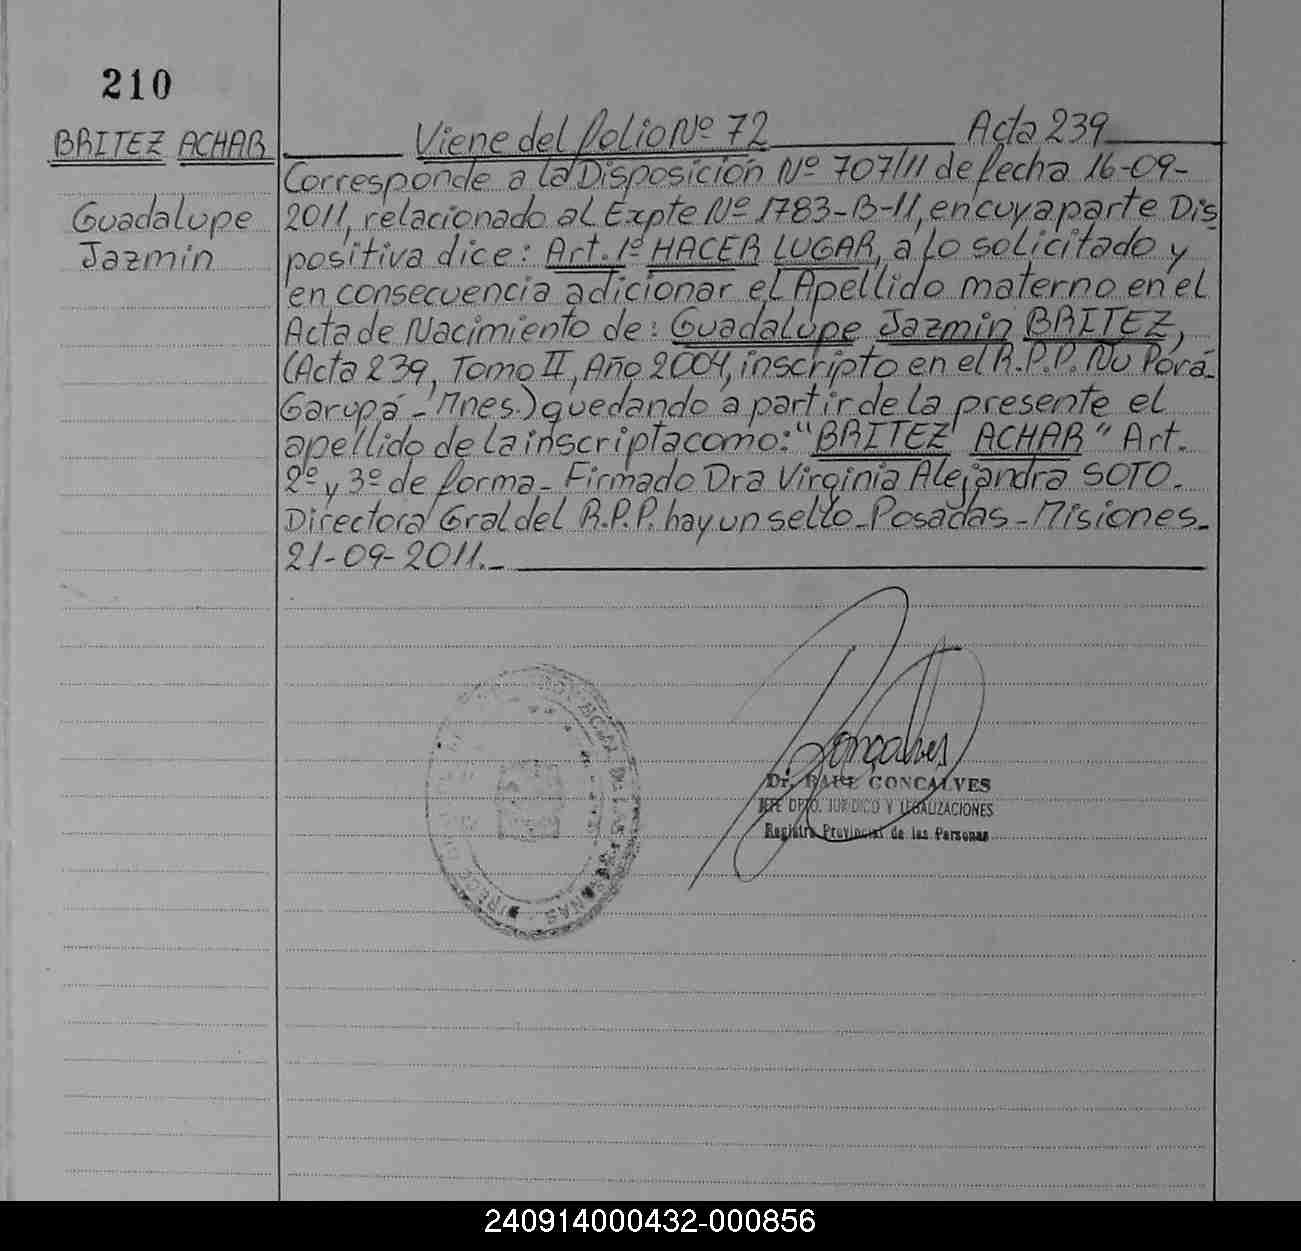 210
BRITEZ ACHAR
Guadalupe
Jazmin
Viene del folio Nº 72 Acta 239
Corresponde a la Disposición Nº 707/11 de fecha 16-09-
2011, relacionado al Expte Nº 1783-B-11, en cuya parte Dis
positiva dice: Art. 1º HACER LUGAR, a lo solicitado y
en consecuencia adicionar el Apellido materno en el
Acta de Nacimiento de: Guadalupe Jazmin BRITEZ,
(Acta 239, Tomo II, Año 2004, inscripto en el R.P.P. Ñu Porá-
Garupá - Mnes.) quedando a partir de la presente el
apellido de la inscripta como: "BRITEZ ACHAR" Art.
2º y 3º de forma - Firmado Dra Virginia Alejandra SOTO.
Directora Gral del R.P.P. hay un sello - Posadas - Misiones -
21-09-2011. -
Goncalves
Dr. RAUL GONCALVES
JEFE DPTO. JURIDICO Y LEGALIZACIONES
Registro Provincial de las Personas
240914000432-000856